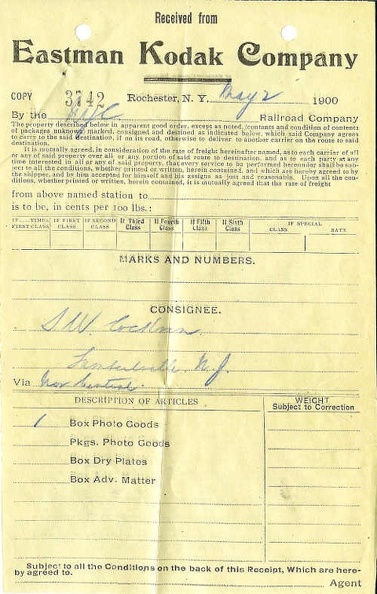 Received from
Eastman Kodak Company
COPY 3742 Rochester, N. Y. May 2 1900
By the NYC Railroad Company
The property described below in apparent good order, except as noted, (contents and condition of contents
of packages unknown) marked, consigned and destined as indicated below, which said Company agrees
to carry to the said destination, if on its road, otherwise to deliver to another carrier on the route to said
destination.
It is mutually agreed, in consideration of the rate of freight hereinafter named, as to each carrier of all
or any of said property over all or any portion of said route to destination, and as to each party at any
time interested in all or any of said property, that every service to be performed hereunder shall be sub-
ject to all the conditions, whether printed or written, herein contained, and which are hereby agreed to
by the shipper, and by him accepted for himself and his assigns as just and reasonable. Upon all the con-
ditions, whether printed or written, herein contained, it is mutually agreed that the rate of freight
from above named station to
is to be, in cents per 100 lbs:
IF TIMES FIRST CLASS IF FIRST CLASS IF SECOND CLASS If Third Class If Fourth Class If Fifth Class If Sixth Class IF SPECIAL CLASS RATE
MARKS AND NUMBERS.
CONSIGNEE.
N. J.
Via
DESCRIPTION OF ARTICLES WEIGHT
Subject to Correction
1 Box Photo Goods
Pkgs. Photo Goods
Box Dry Plates
Box Adv. Matter
Subject to all the Conditions on the back of this Receipt, Which are here-
by agreed to.
Agent